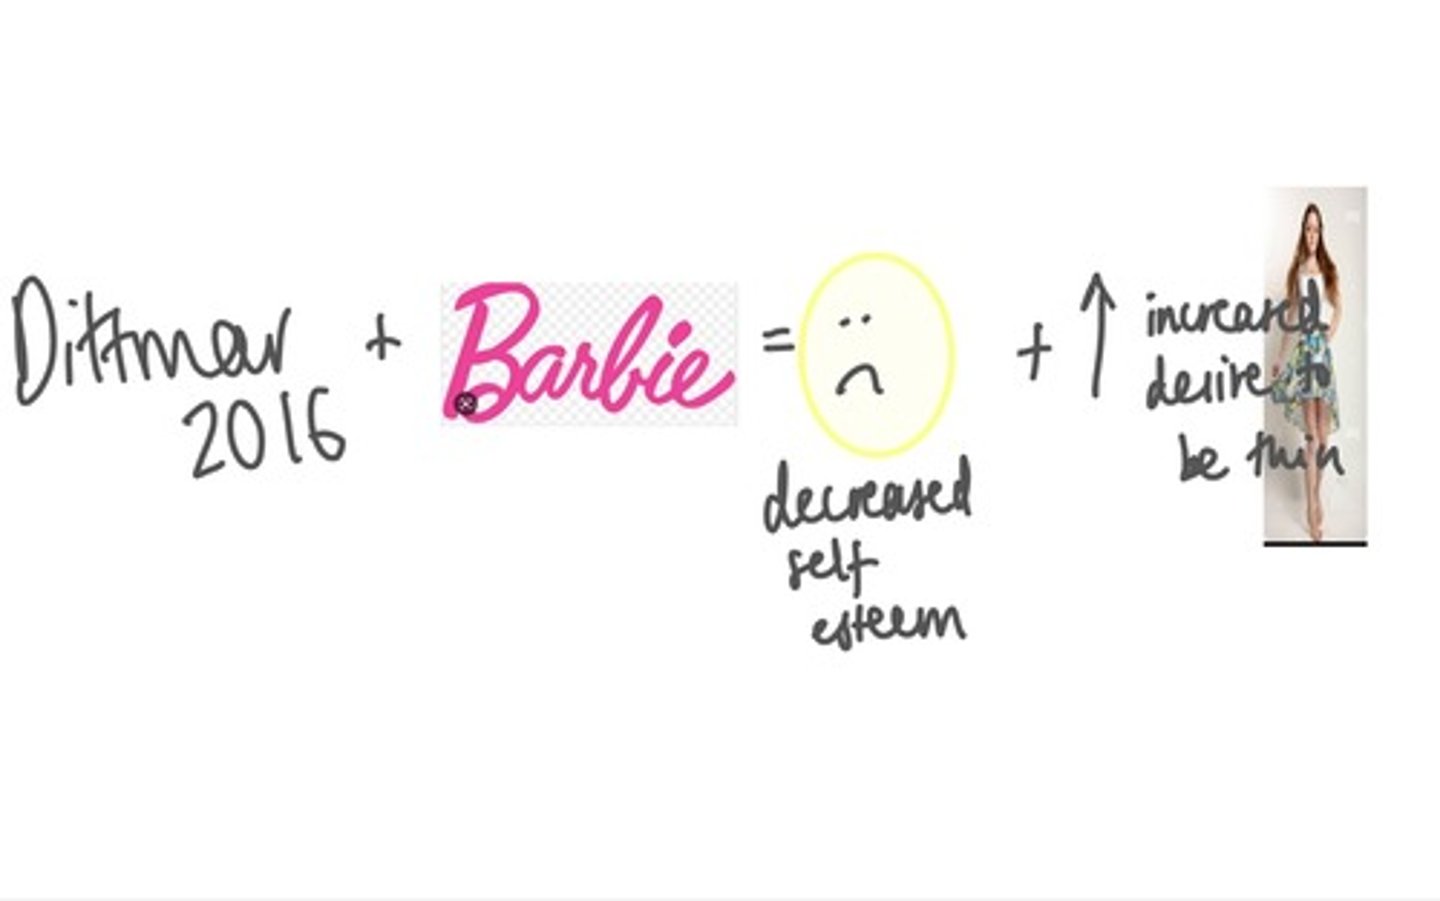 Dittmar
2016
+
Barbie
=
decreased
self
esteem
+ ↑
increased
desire to
be thin